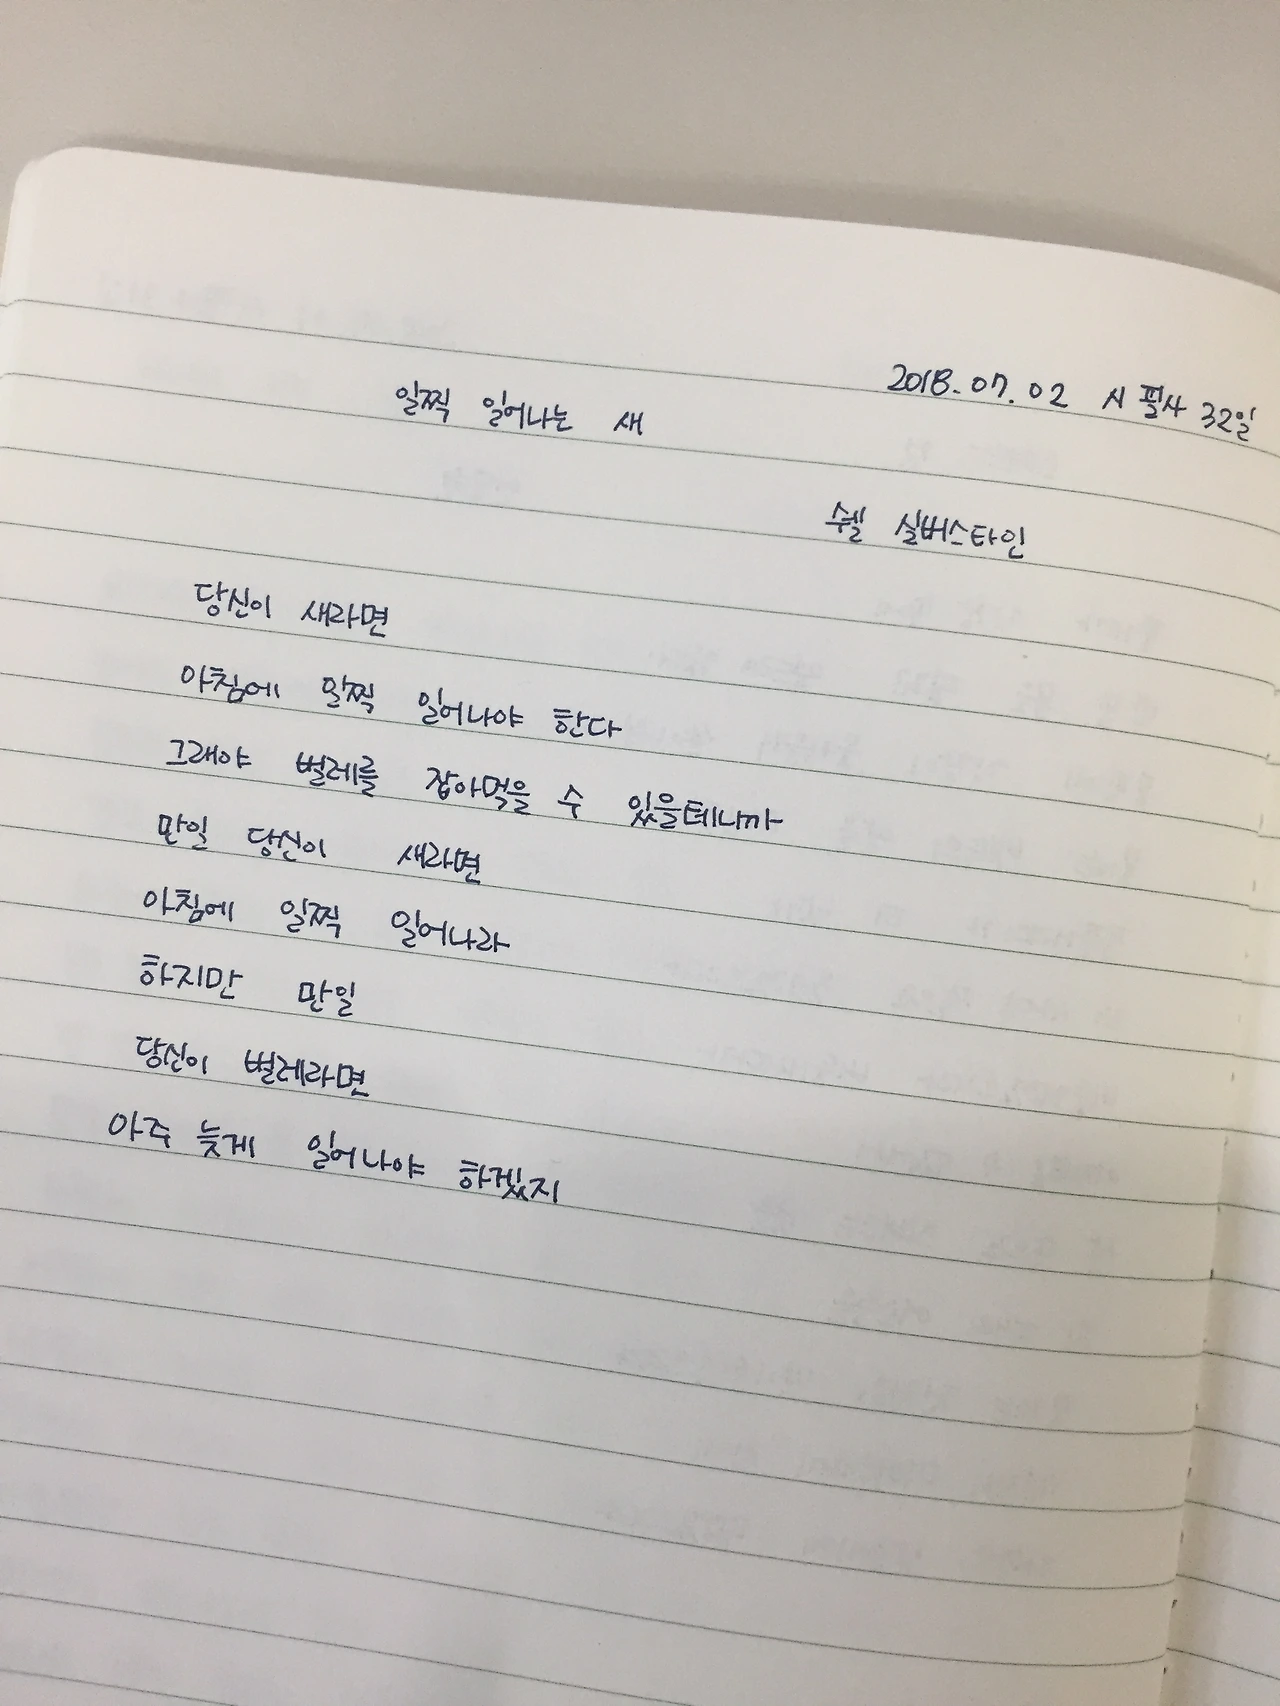 2018.07.02 시 필사 32일
일찍 일어나는 새
쉘 실버스타인
당신이 새라면
아침에 일찍 일어나야 한다
그래야 벌레를 잡아먹을 수 있을테니까
만일 당신이 새라면
아침에 일찍 일어나라
하지만 만일
당신이 벌레라면
아주 늦게 일어나야 하겠지